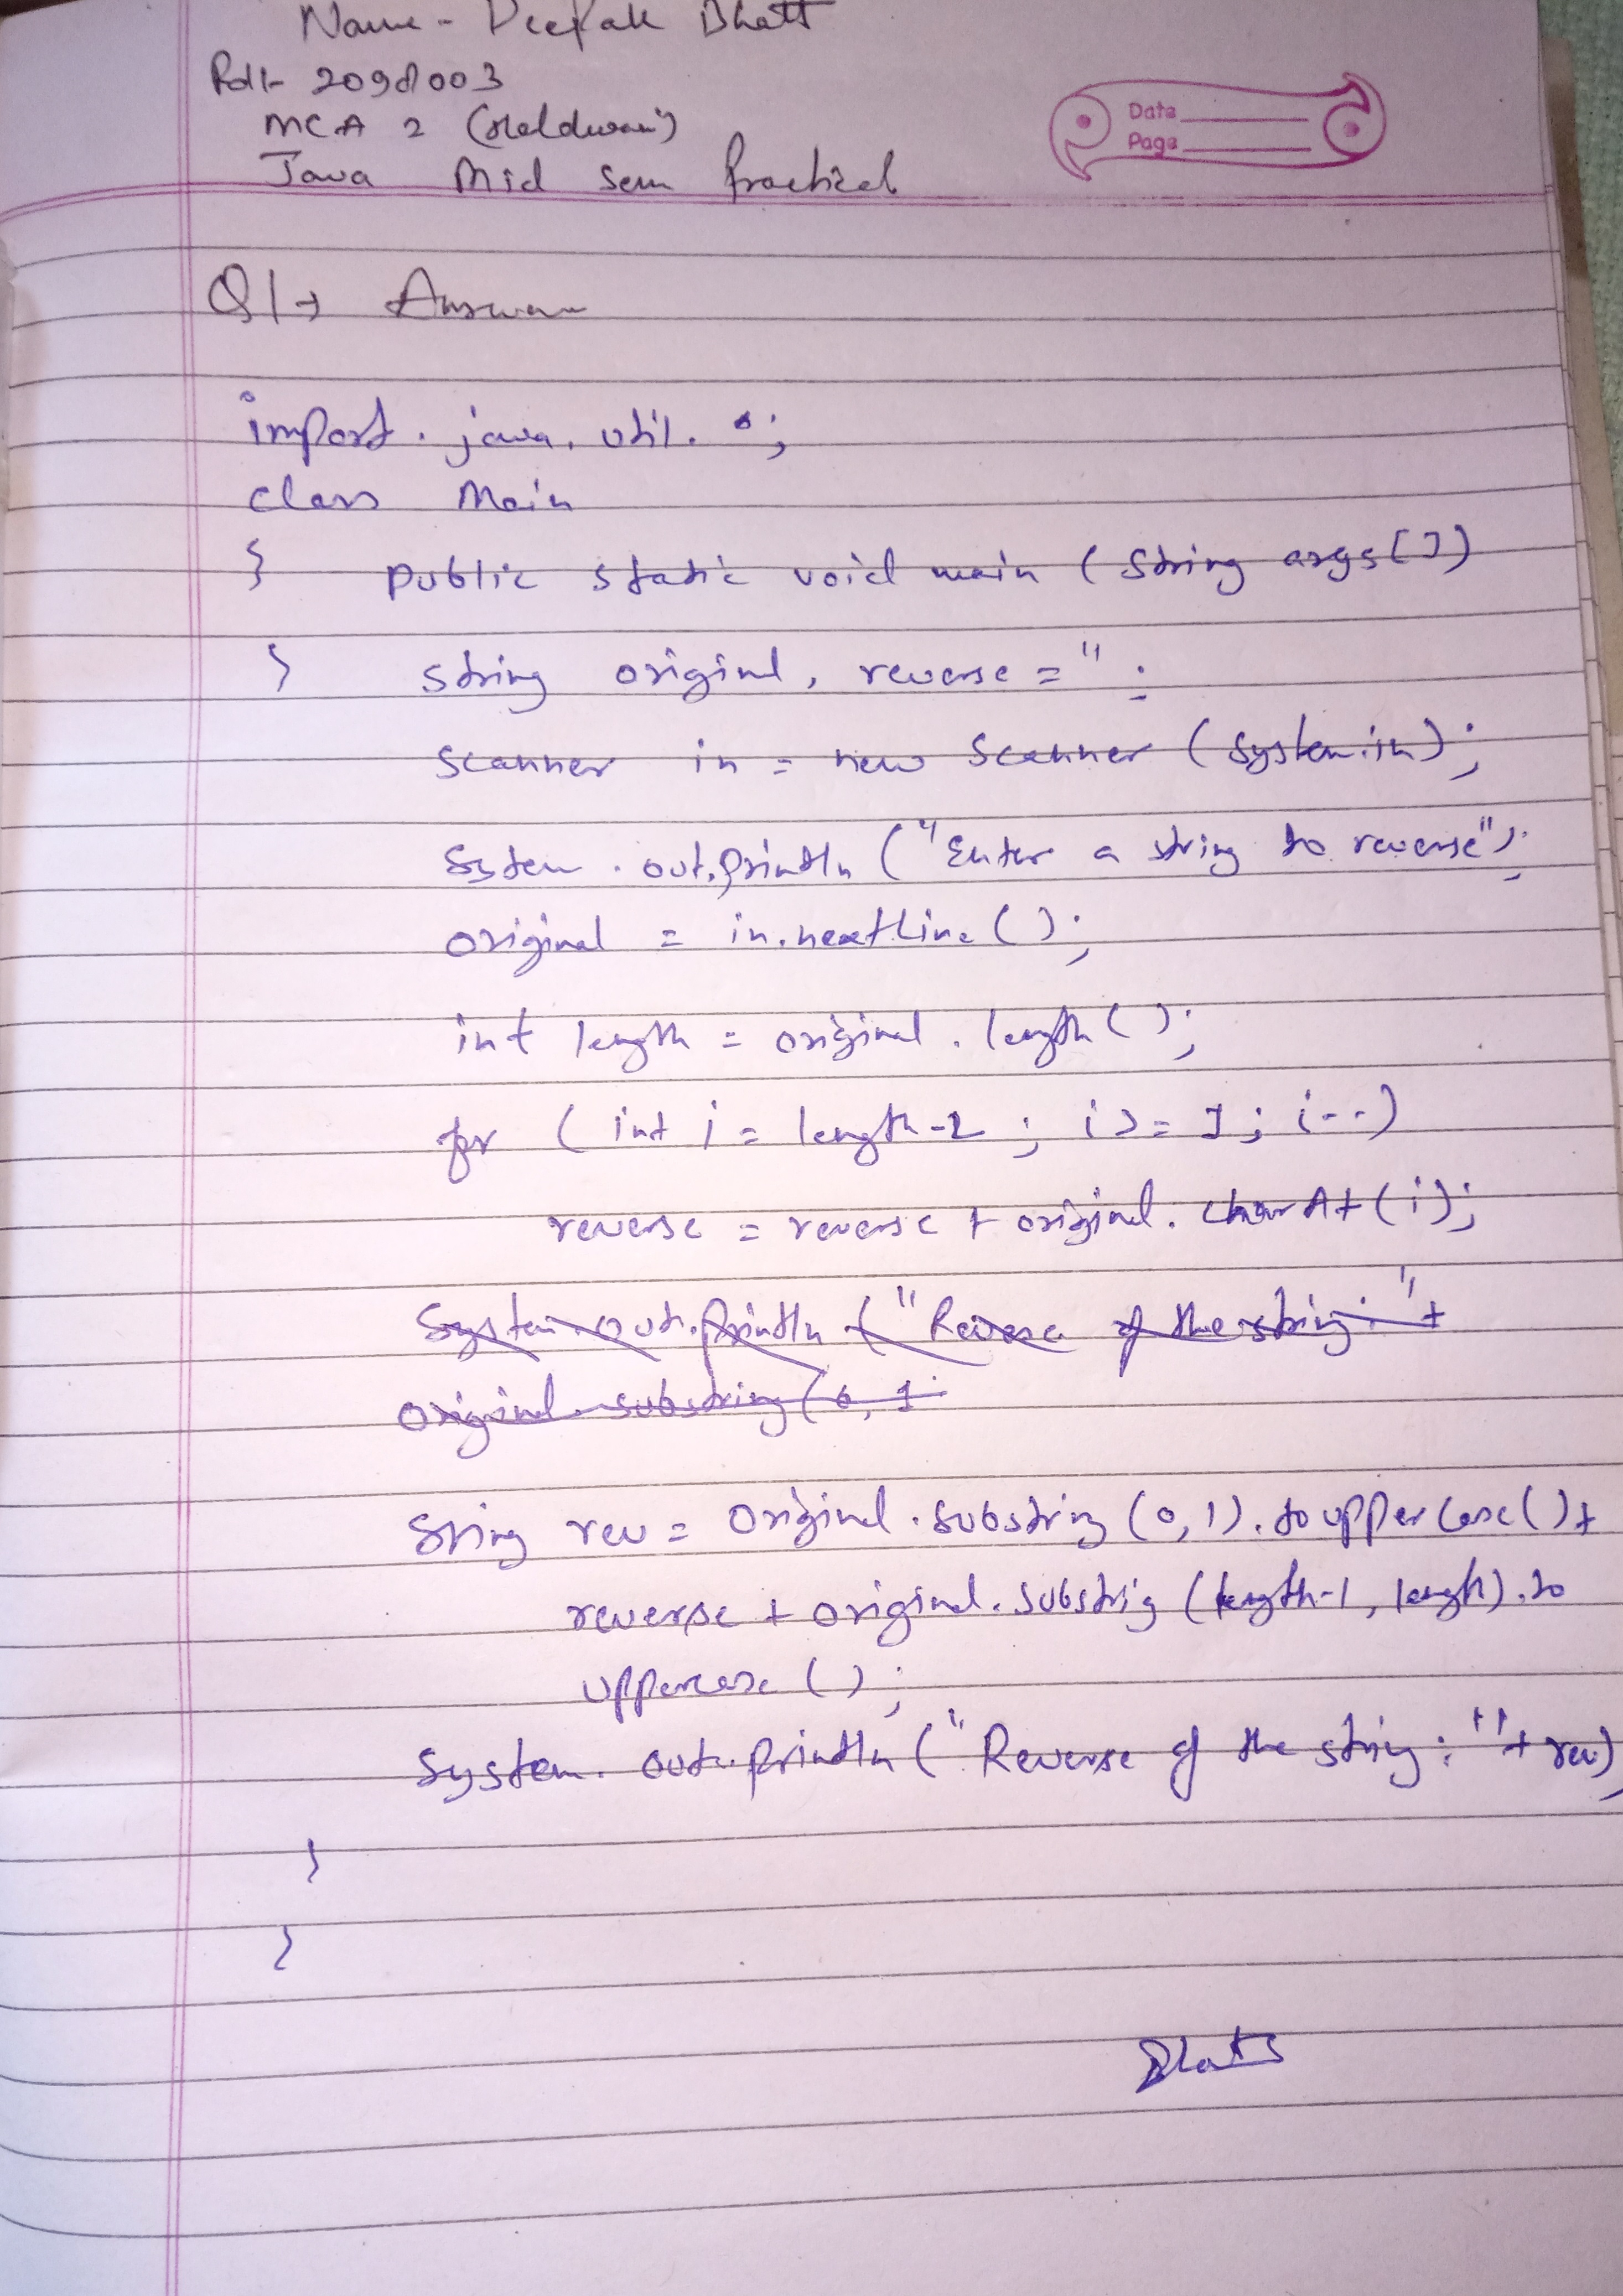 Name - Deepak Bhatt
Roll- 2098003
MCA 2 (Haldwani)
Java Mid Sem Practical
Date
Page
Q1→ Answer
import . java. util. *;
class Main
{ public static void main (String args[])
{ string original, reverse = " ;
scanner in = new Scanner (System.in);
System . out.println ("Enter a string to reverse");
original = in.nextLine();
int length = original . length();
for ( int i = length-2 ; i >= 1 ; i--)
reverse = reverse + original. charAt(i);
System.out.println ("Reverse of the string: "+
original.substring(0, 1
String rev = original.substring (0,1).to uppercase()+
reverse + original.substrig (length-1, length).to
uppercase ();
System. out.println ("Reverse of the string: "+ rev);
}
}
Bhatt